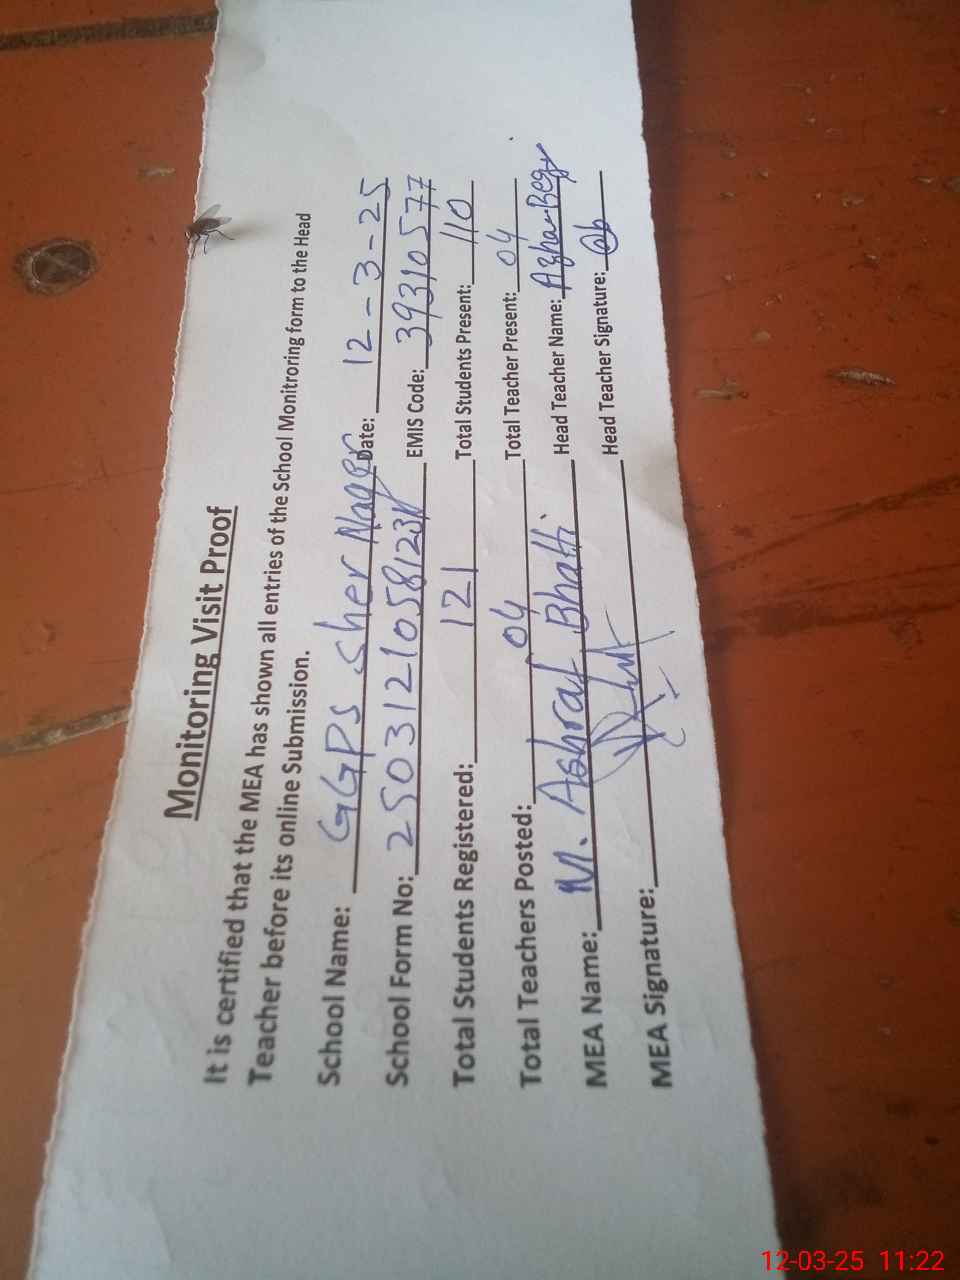 Monitoring Visit Proof
It is certified that the MEA has shown all entries of the School Monitroring form to the Head
Teacher before its online Submission.
School Name: GGPS Sher Nager Date: 12-3-25
School Form No: 25031210581231 EMIS Code: 39310577
Total Students Registered: 121 Total Students Present: 110
Total Teachers Posted: 04 Total Teacher Present: 04
MEA Name: M. Ashraf Bhatti Head Teacher Name: Azhar Beg
MEA Signature: Head Teacher Signature:
12-03-25 11:22